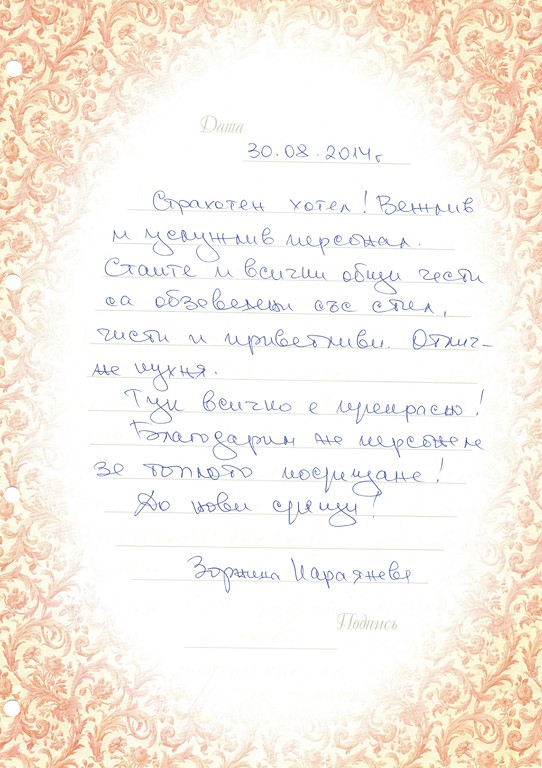 Дата
30.08.2014г
Страхотен хотел! Вежлив
и услужлив персонал.
Стаите и всички общи части
са обзаведени със стил,
чисти и приветливи. Отлич-
на кухня.
Тук всичко е прекрасно!
Благодарим на персонала
за топлото посрещане!
До нови срещи!
Зорница Караянева
Подпись